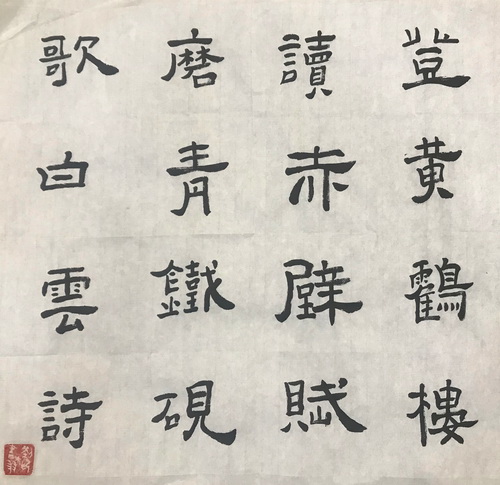 登黄鸖樓
讀赤壁賦
磨青鐵硯
歌白雲詩